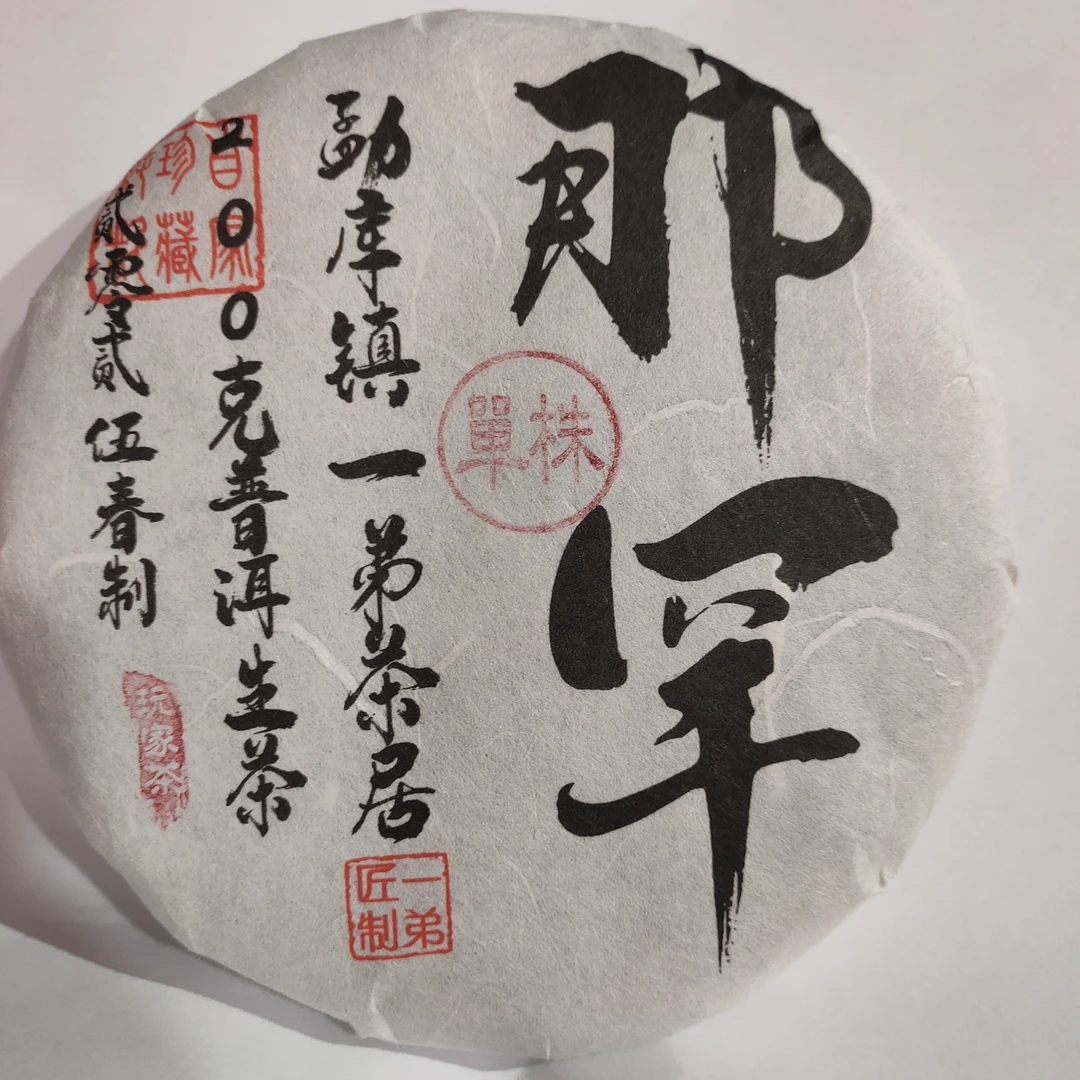 那罕
單株
勐库镇一弟茶居
一弟匠制
200克普洱生茶
贰零贰伍春制
珍藏
玩家茶